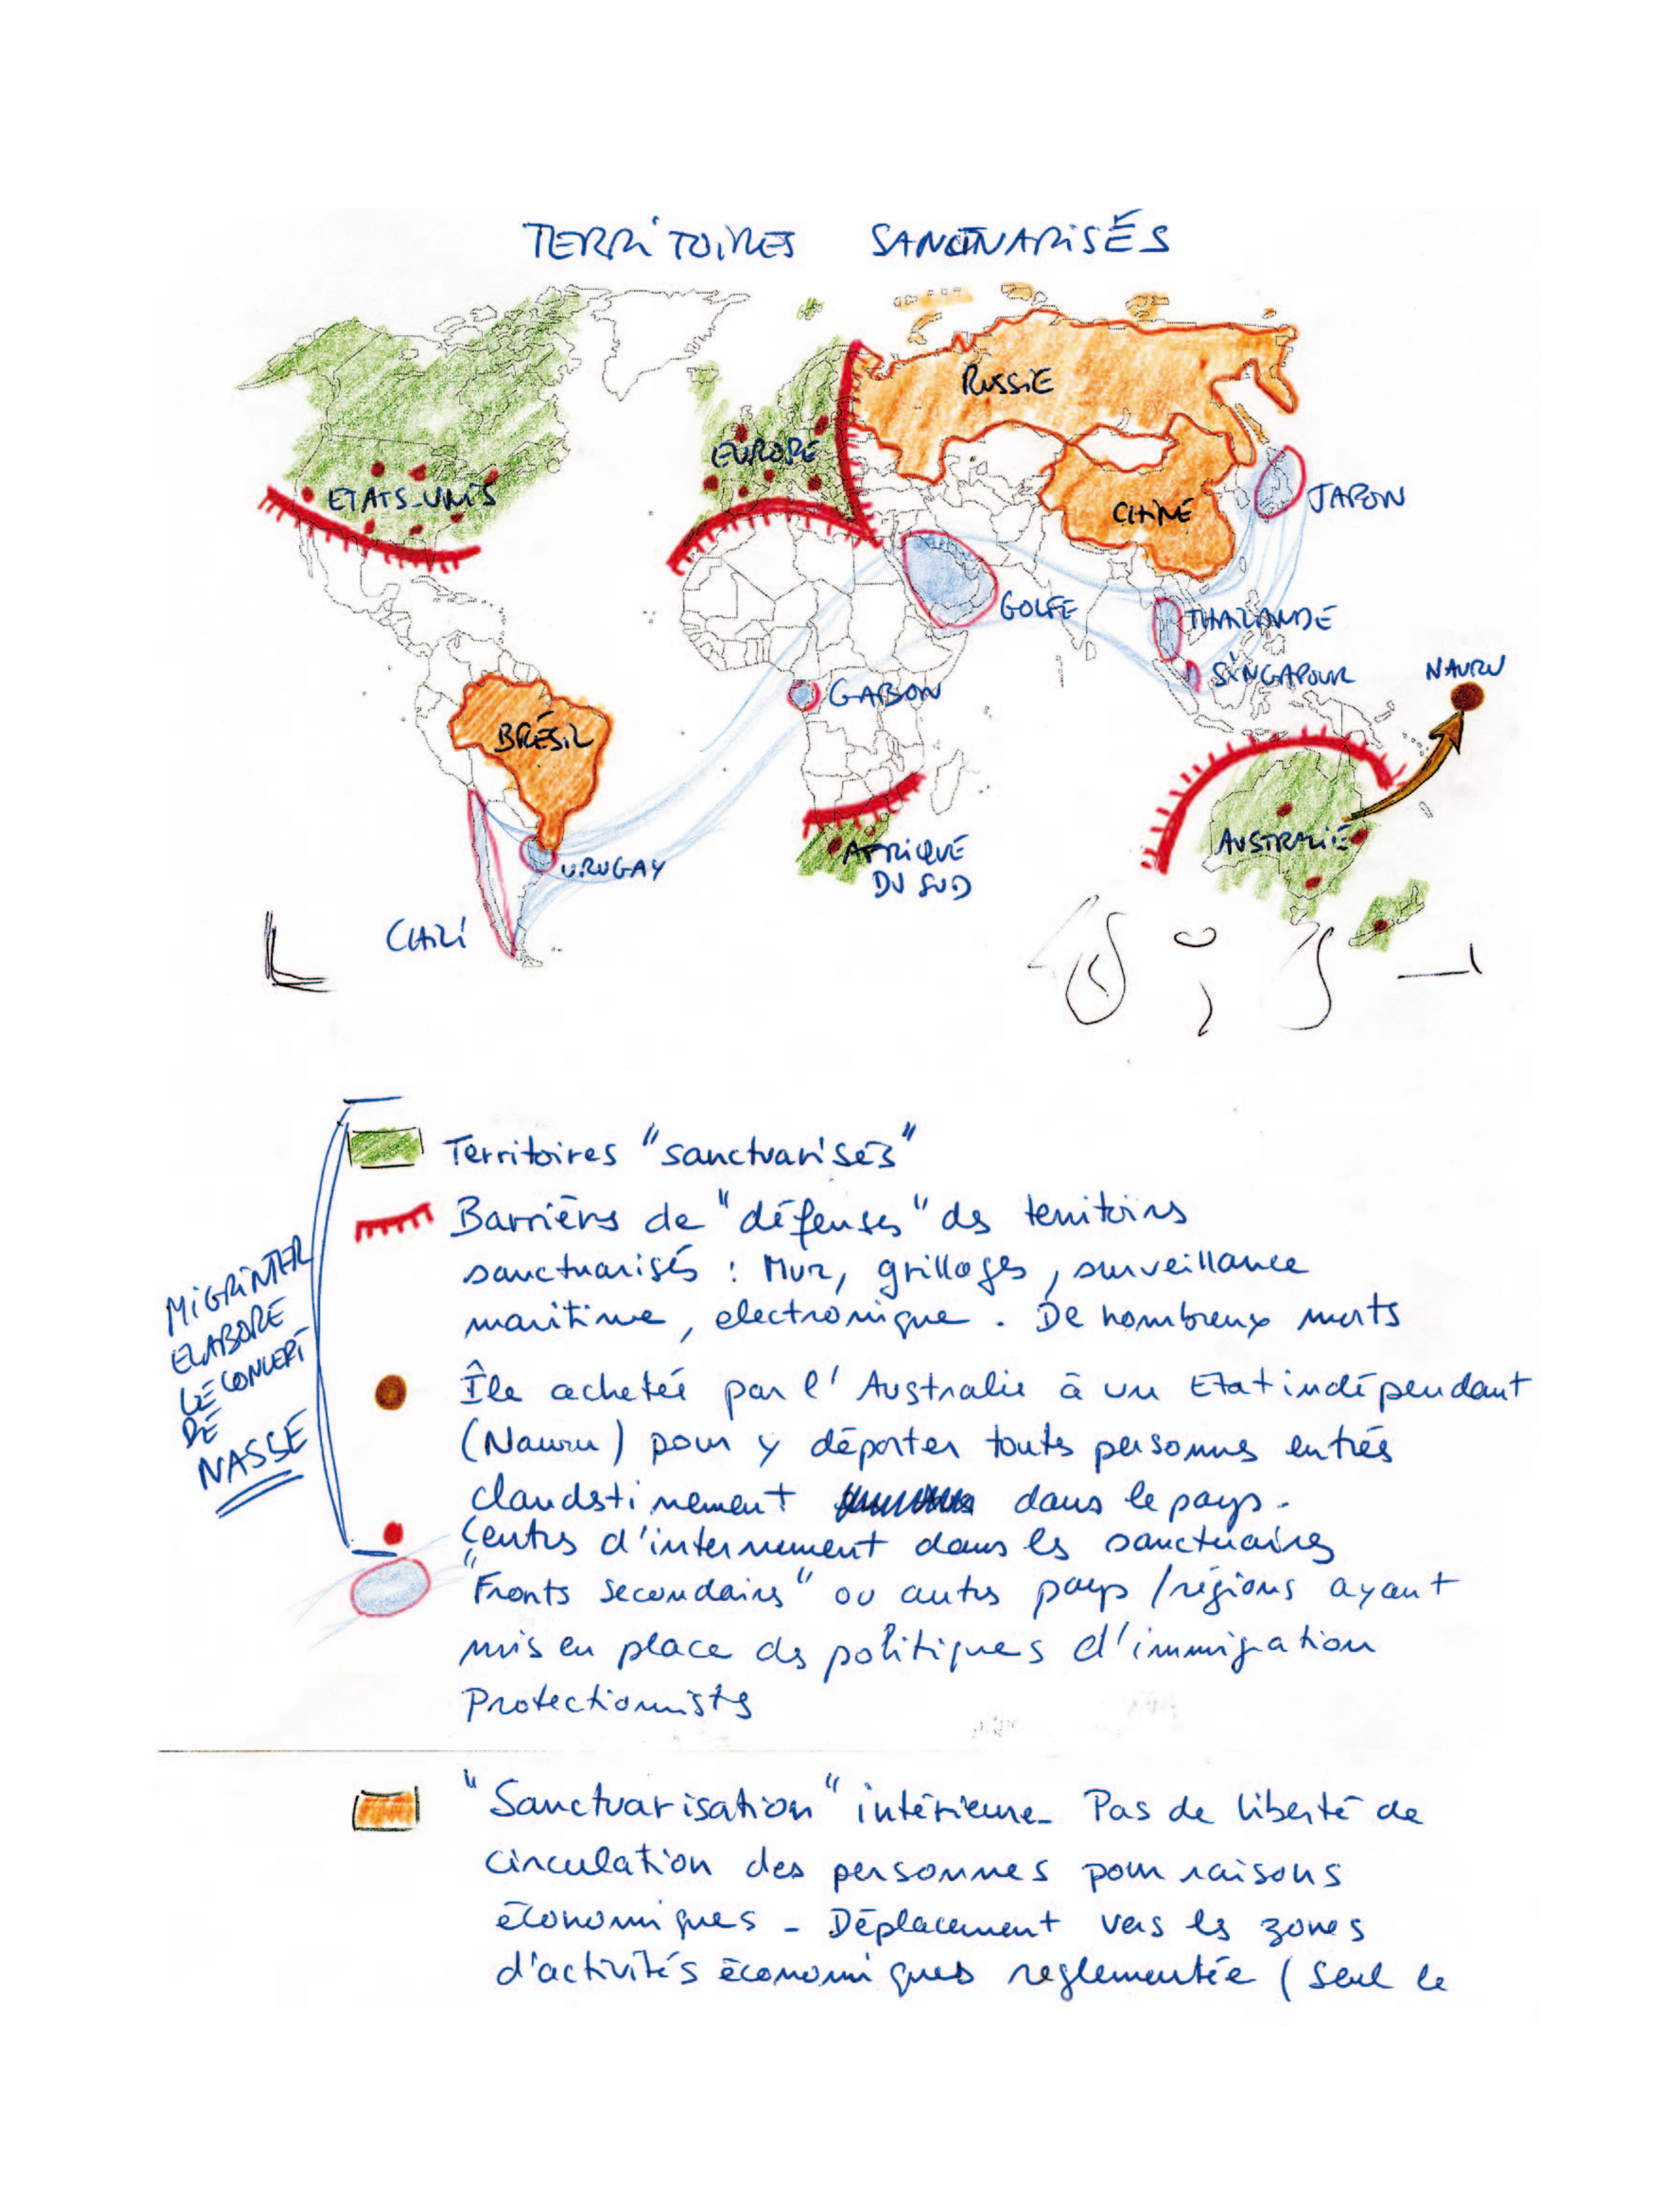 TERRITOIRES SANCTUARISÉS
RUSSIE
EUROPE
ETATS-UNIS
JAPON
CHINE
GOLFE
THAILANDE
SINGAPOUR
NAURU
GABON
BRÉSIL
AUSTRALIE
AFRIQUE
DU SUD
URUGAY
CHILI
Territoires "sanctuarisés"
Barrières de "défenses" des territoires
sanctuarisés : Mur, grillages, surveillance
maritime, electronique. De nombreux morts
MIGRINTER
ELABORE
LE CONCEPT
DE
NASSE
Île achetée par l'Australie à un Etat indépendant
(Nauru) pour y déporter toutes personnes entrées
clandestinement dans le pays.
Centres d'internement dans les sanctuaires
"Fronts secondaires" ou autres pays/régions ayant
mis en place des politiques d'immigration
Protectionnistes
"Sanctuarisation" intérieure - Pas de liberté de
circulation des personnes pour raisons
économiques - Déplacement vers les zones
d'activités économiques reglementée (seul le